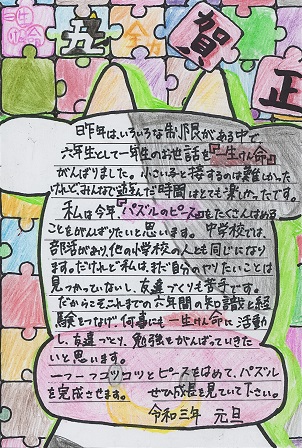 賀
正
昨年は、いろいろな制限がある中で
六年生として一年生のお世話を『一生けん命』
がんばりました。小さい子と接するのは難しかった
けれど、みんなで遊んだ時間はとても楽しかったです。
私は今年、『パズルのピース』をたくさんはめる
ことをがんばりたいと思います。中学校では、
部活があり、他の小学校の人とも同じになり
ます。だけれど私は、まだ自分のやりたいことは
見つかっていないし、友達づくりも苦手です。
だからこそ、これまでの六年間の知識と経
験をつなげ、何事にも一生けん命に活動
し、友達づくり、勉強をがんばっていきた
いと思います。
一つ一つコツコツとピースをはめて、パズル
を完成させます。ぜひ成長を見ていて下さい。
令和三年 元旦